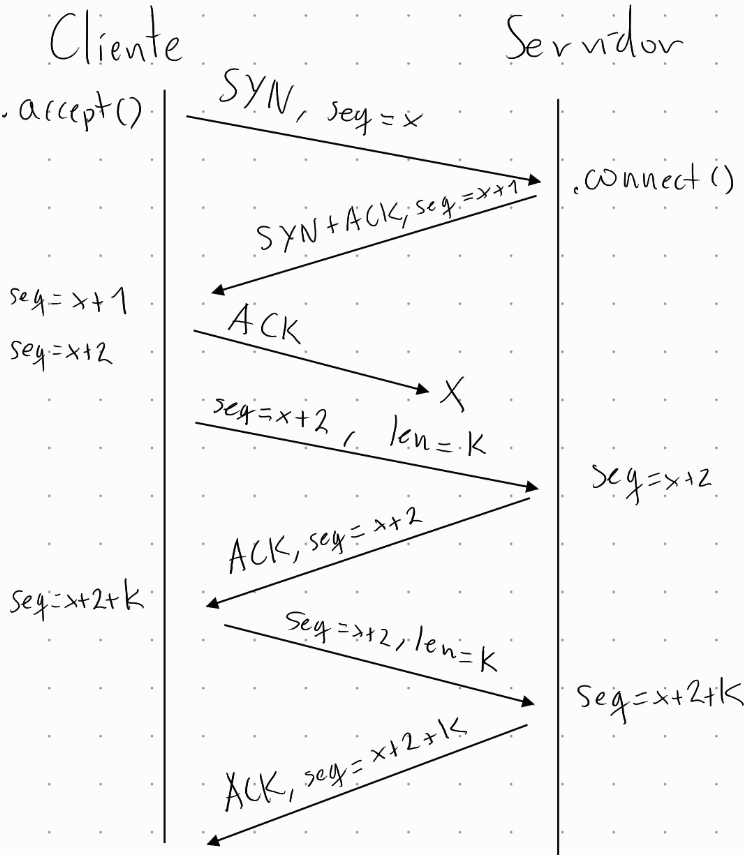 Cliente
Servidor
.accept()
SYN, seq = x
.connect()
SYN+ACK, seq = x+1
seq = x+1
ACK
seq = x+2
X
seq = x+2, len = K
seq = x+2
ACK, seq = x+2
seq = x+2+K
seq = x+2, len = K
seq = x+2+K
ACK, seq = x+2+K